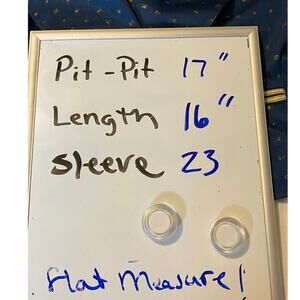 Pit-Pit 17"
Length 16"
Sleeve 23
Flat Measure!